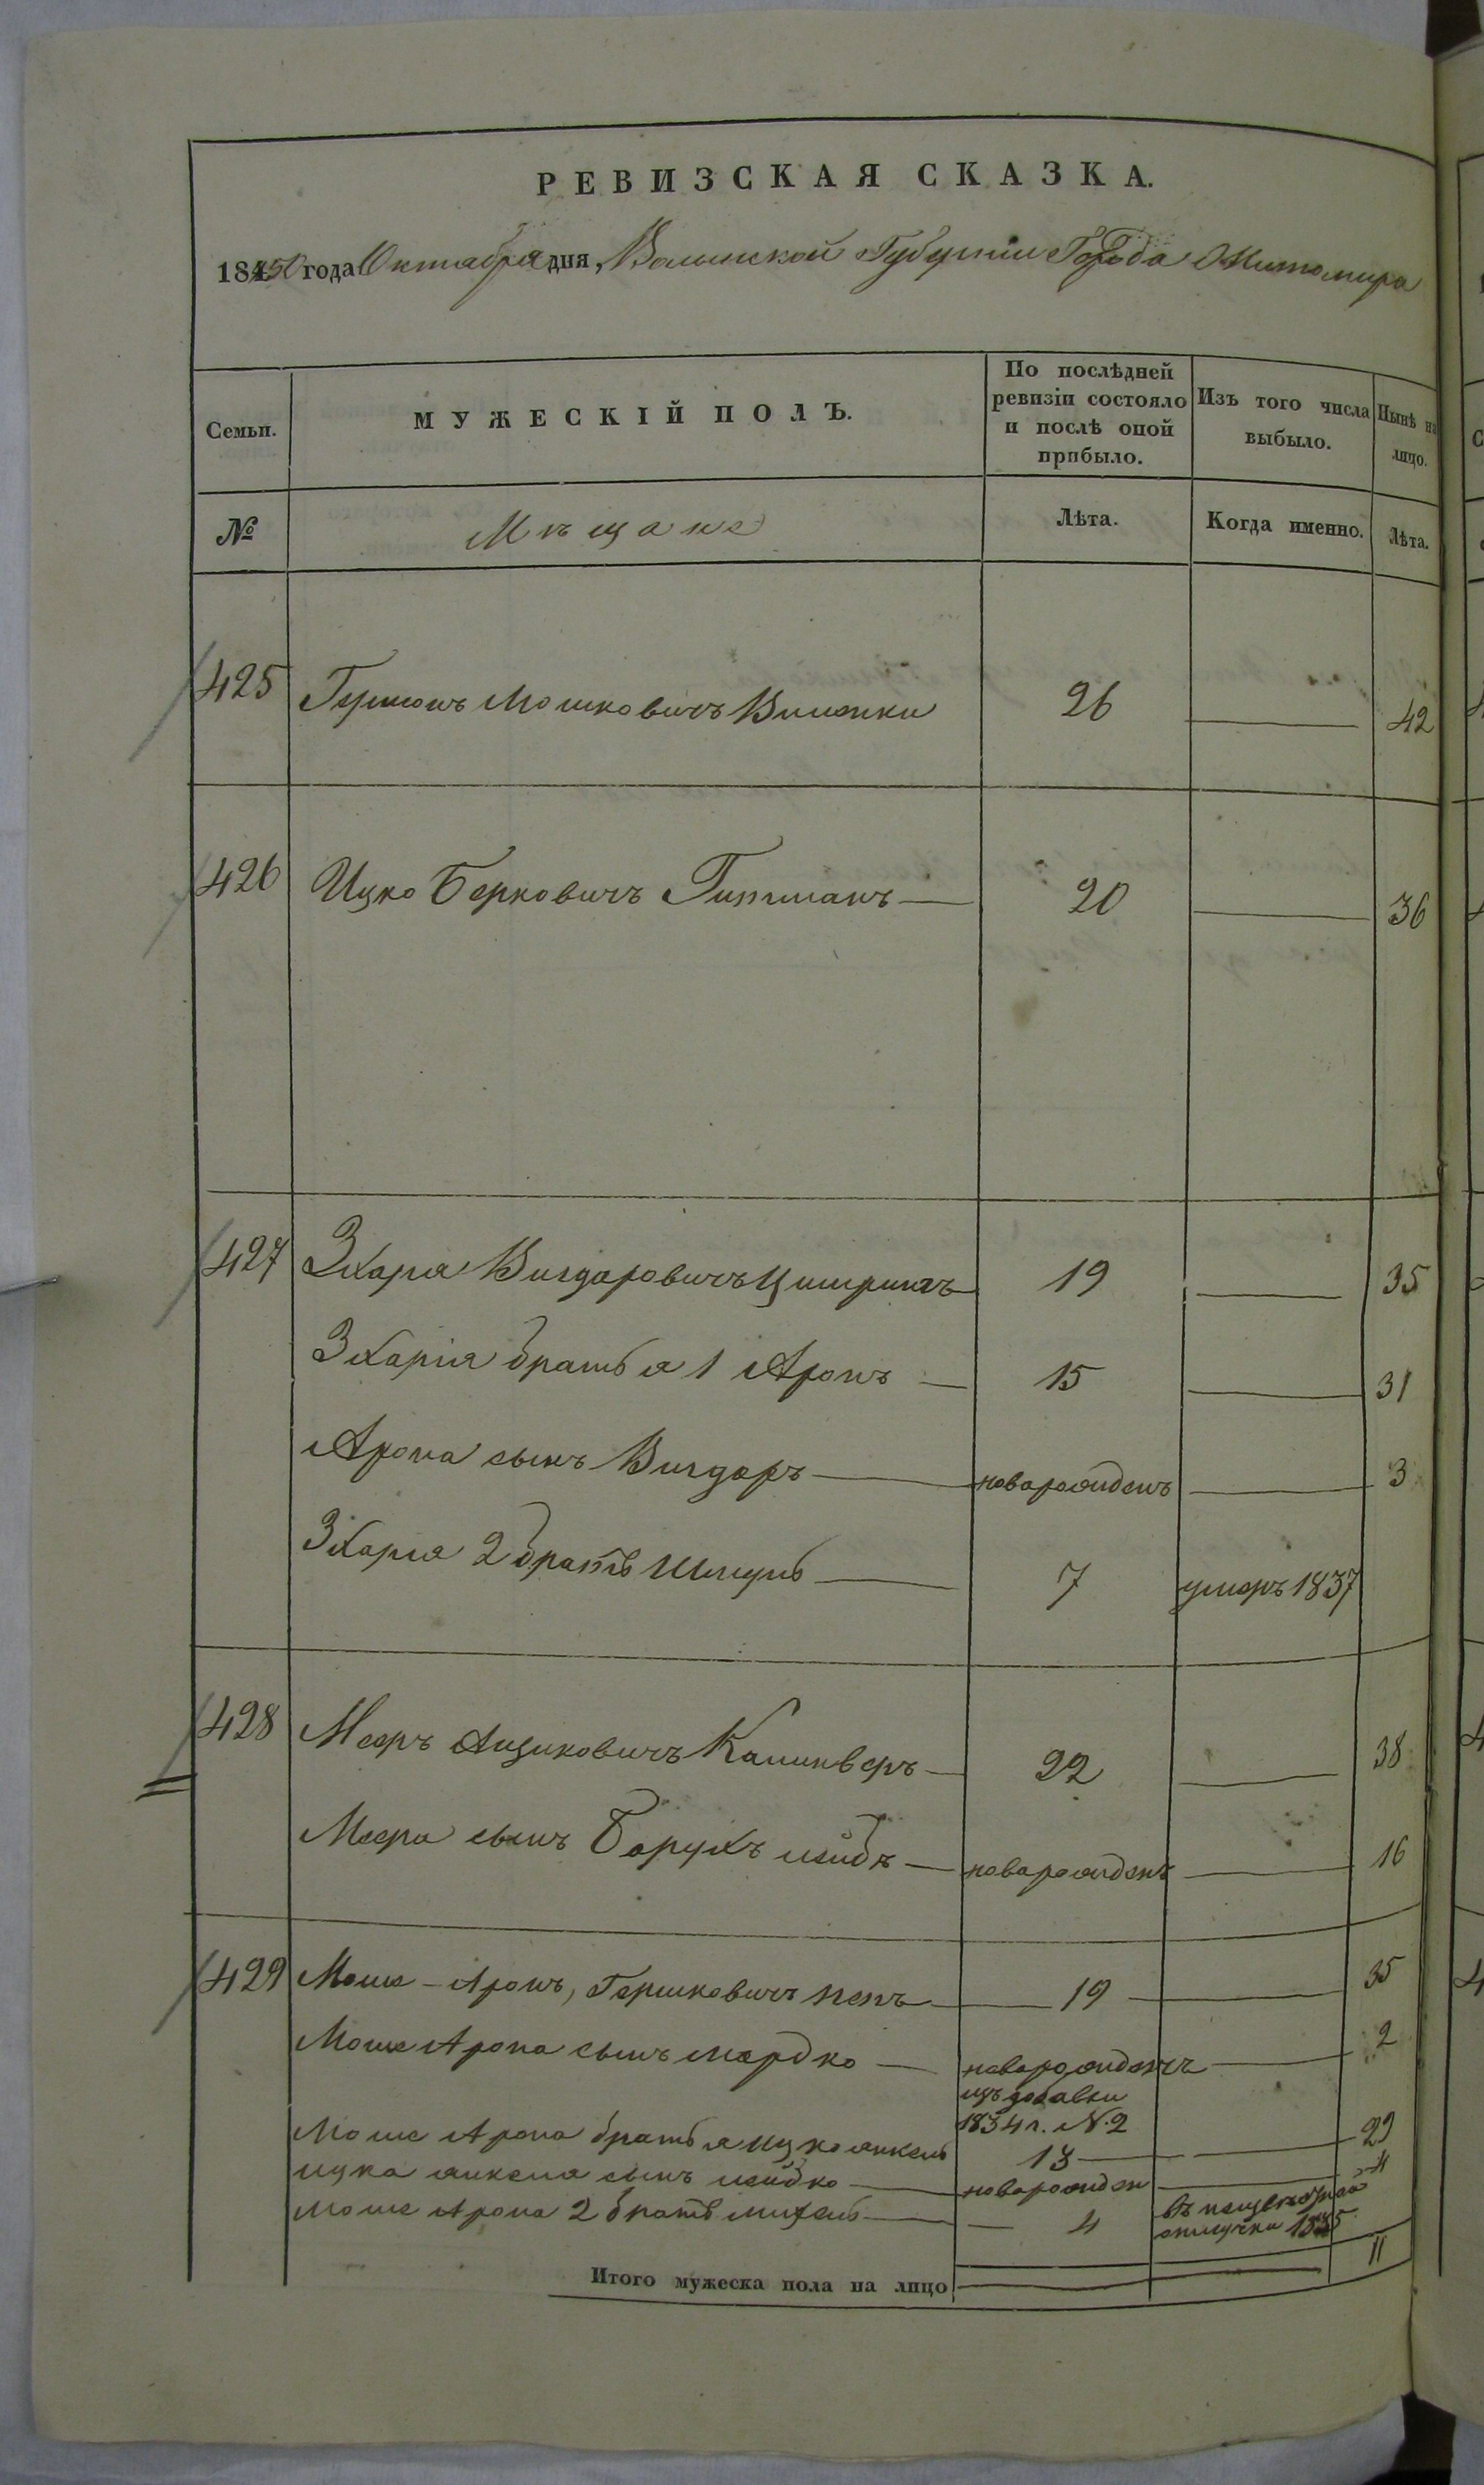 РЕВИЗСКАЯ СКАЗКА.
1850 года Октября дня, Волынской Губернiи Города Житомира
Семьи.
МУЖЕСКІЙ ПОЛЪ.
По послѣдней ревизіи состояло и послѣ оной прибыло.
Изъ того числа выбыло.
Нынѣ на лицо.
№
Мѣщане
Лѣта.
Когда именно.
Лѣта.
425 Мошковичъ 26 42
426 Ицко Берковичъ Гитманъ 20 36
427 Зхарія Вигдаровичъ 19 35
Зхарія братья 1 Аронъ 15 31
Арона сынъ Вигдоръ новарожденъ 3
Зхарія 2 братъ Шмуль 7 умеръ 1837
428 Мееръ Ицыковичъ 22 38
Меера сынъ Борухъ лейбъ новарожденъ 16
429 Моше-Аронъ, Гершковичъ 19 35
Моше Арона сынъ мордко новарожденъ 2
изъ
1834 г. №2
Моше Арона братья ицко янкель 13 29
ицка янкеля сынъ лейбко новарожден 4
Моше Арона 2 братъ михель 4 въ
отлучки 1835
Итого мужеска пола на лицо 11